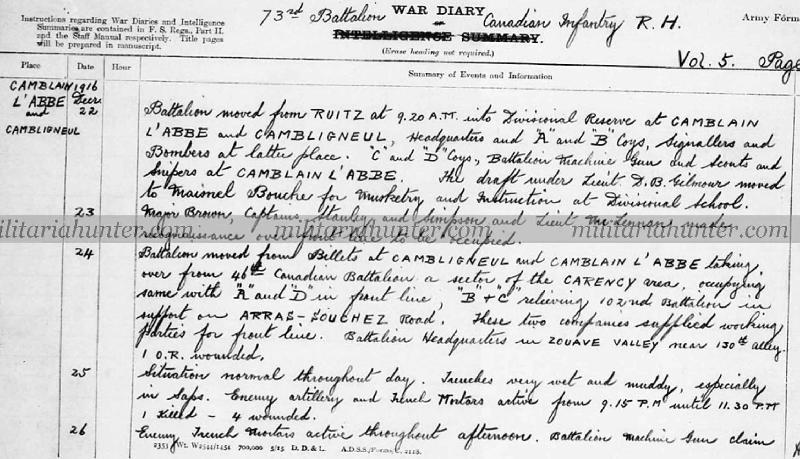 Instructions regarding War Diaries and Intelligence
Summaries are contained in F. S. Regs., Part II.
and the Staff Manual respectively. Title pages
will be prepared in manuscript.
73rd Battalion WAR DIARY Canadian Infantry R. H.
or
INTELLIGENCE SUMMARY.
(Erase heading not required.)
Army Form
Vol. 5. Page
Place Date Hour Summary of Events and Information
CAMBLAIN 1916
L'ABBE Decr.
and 22
CAMBLIGNEUL
Battalion moved from RUITZ at 9.20 A.M. into Divisional Reserve at CAMBLAIN
L'ABBE and CAMBLIGNEUL, Headquarters and "A" and "B" Coys, Signallers and
Bombers at latter place. "C" and "D" Coys, Battalion Machine Gun and Scouts and
Snipers at CAMBLAIN L'ABBE. The draft under Lieut. D.B. Gilmour moved
to Maisnel Bouche for Musketry and Instruction at Divisional School.
23 Major Brown, Captains Stanley and Simpson and Lieut McLennan made
reconnaissance over front line to be occupied.
militariahunter.com militariahunter.com militariahunter.com
24 Battalion moved from Billets at CAMBLIGNEUL and CAMBLAIN L'ABBE taking
over from 46th Canadian Battalion a sector of the CARENCY area, occupying
same with "A" and "D" in front line, "B" + "C" relieving 102nd Battalion in
support on ARRAS-SOUCHEZ Road. These two companies supplied working
parties for front line. Battalion Headquarters in ZOUAVE VALLEY near 130th alley.
1 O.R. wounded.
25 Situation normal throughout day. Trenches very wet and muddy, especially
in Saps. Enemy artillery and Trench Mortars active from 9.15 P.M until 11.30 P.M
1 Killed - 4 wounded.
26 Enemy Trench Mortars active throughout afternoon. Battalion Machine Gun claim
2353 Wt. W2544/1454 700,000 5/15 D. D. & L. A.D.S.S./Forms/C. 2118.